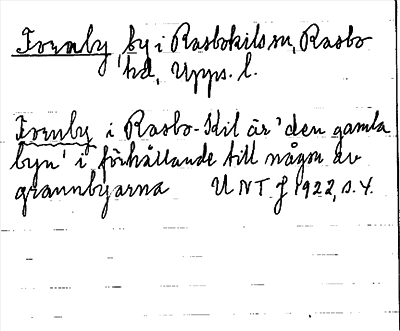 Fornby, by i Rasbokils sn, Rasbo
hd, Upps. l.
Fornby i Rasbo-Kil är 'den gamla
byn' i förhållande till någon av
grannbyarna UNT J 1922, s. 4.